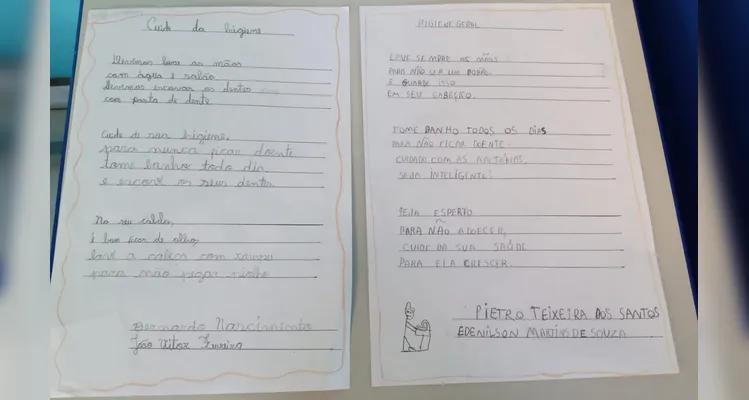 Cuide da higiene
Devemos lavar as mãos
com água e sabão
Devemos escovar os dentes
com pasta de dente
Cuide da sua higiene,
para nunca ficar doente
tome banho todo dia
e escove os seus dentes
No seu cabelo,
é bom ficar de olho,
lave a cabeça com xampu
para não pegar piolho
Bernardo Narcimento
João Vitor Ferreira
HIGIENE GERAL
LAVE SEMPRE AS MÃOS
PARA NÃO
E GUARDE ISSO
EM SEU CORAÇÃO.
TOME BANHO TODOS OS DIAS
PARA NÃO FICAR DOENTE
CUIDADO COM AS BACTÉRIAS,
SEJA INTELIGENTE!
SEJA ESPERTO
PARA NÃO ADOECER,
CUIDE DA SUA SAÚDE
PARA ELA CRESCER.
PIETRO TEIXEIRA DOS SANTOS
EDENILSON MARTINS DE SOUZA